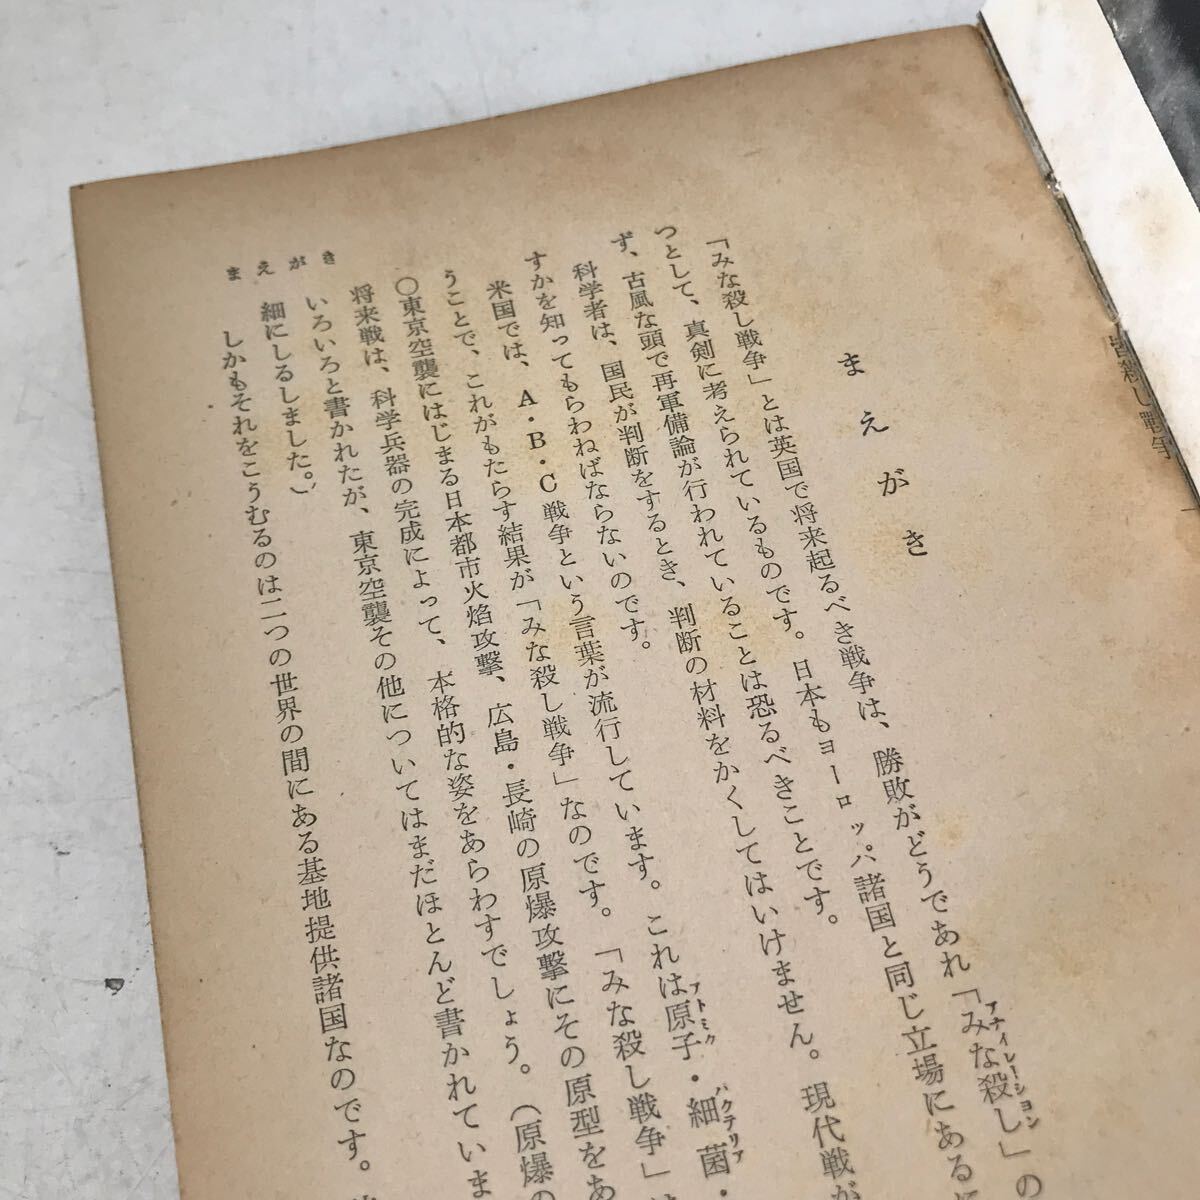 皆殺し戰争
まえがき
「みな殺し戦争」とは英国で将来起るべき戦争は、勝敗がどうであれ「みな殺し」の
アナイレーション
つとして、真剣に考えられているものです。日本もヨーロッパ諸国と同じ立場にある
ず、古風な頭で再軍備論が行われていることは恐るべきことです。
科学者は、国民が判断をするとき、判断の材料をかくしてはいけません。現代戦が
すかを知ってもらわねばならないのです。
米国では、A・B・C戦争という言葉が流行しています。これは原子・細菌・
アトミク
バクテリア
うことで、これがもたらす結果が「みな殺し戦争」なのです。「みな殺し戦争」は
〇東京空襲にはじまる日本都市火焰攻撃、広島・長崎の原爆攻撃にその原型をあ
将来戦は、科学兵器の完成によって、本格的な姿をあらわすでしょう。(原爆の
いろいろと書かれたが、東京空襲その他についてはまだほとんど書かれていま
細にしるしました。)
しかもそれをこうむるのは二つの世界の間にある基地提供諸国なのです。
まえがき